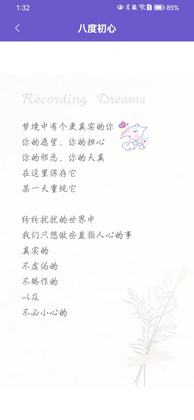 1:32
85
八度初心
Recording Dreams
梦境中有个更真实的你
你的愿望，你的担心
你的邪恶，你的天真
在这里保存它
某一天重现它
纷纷扰扰的世界中
我们只想做些直指人心的事
真实的
不虚伪的
不矫作的
以及
不必小心的